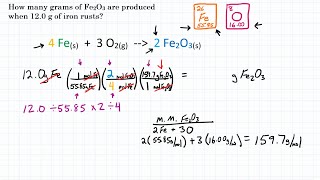 How many grams of Fe₂O₃ are produced
when 12.0 g of iron rusts?
26 Fe 55.85
8 O 16.00
4 Fe(s) + 3 O₂(g) --> 2 Fe₂O₃(s)
12.0 g Fe (1 mol Fe / 55.85 g Fe) (2 mol Fe₂O₃ / 4 mol Fe) (159.7 g Fe₂O₃ / 1 mol Fe₂O₃) = g Fe₂O₃
12.0 ÷ 55.85 × 2 ÷ 4
m.m. Fe₂O₃
2Fe + 3O
2(55.85 g/mol) + 3(16.00 g/mol) = 159.7 g/mol